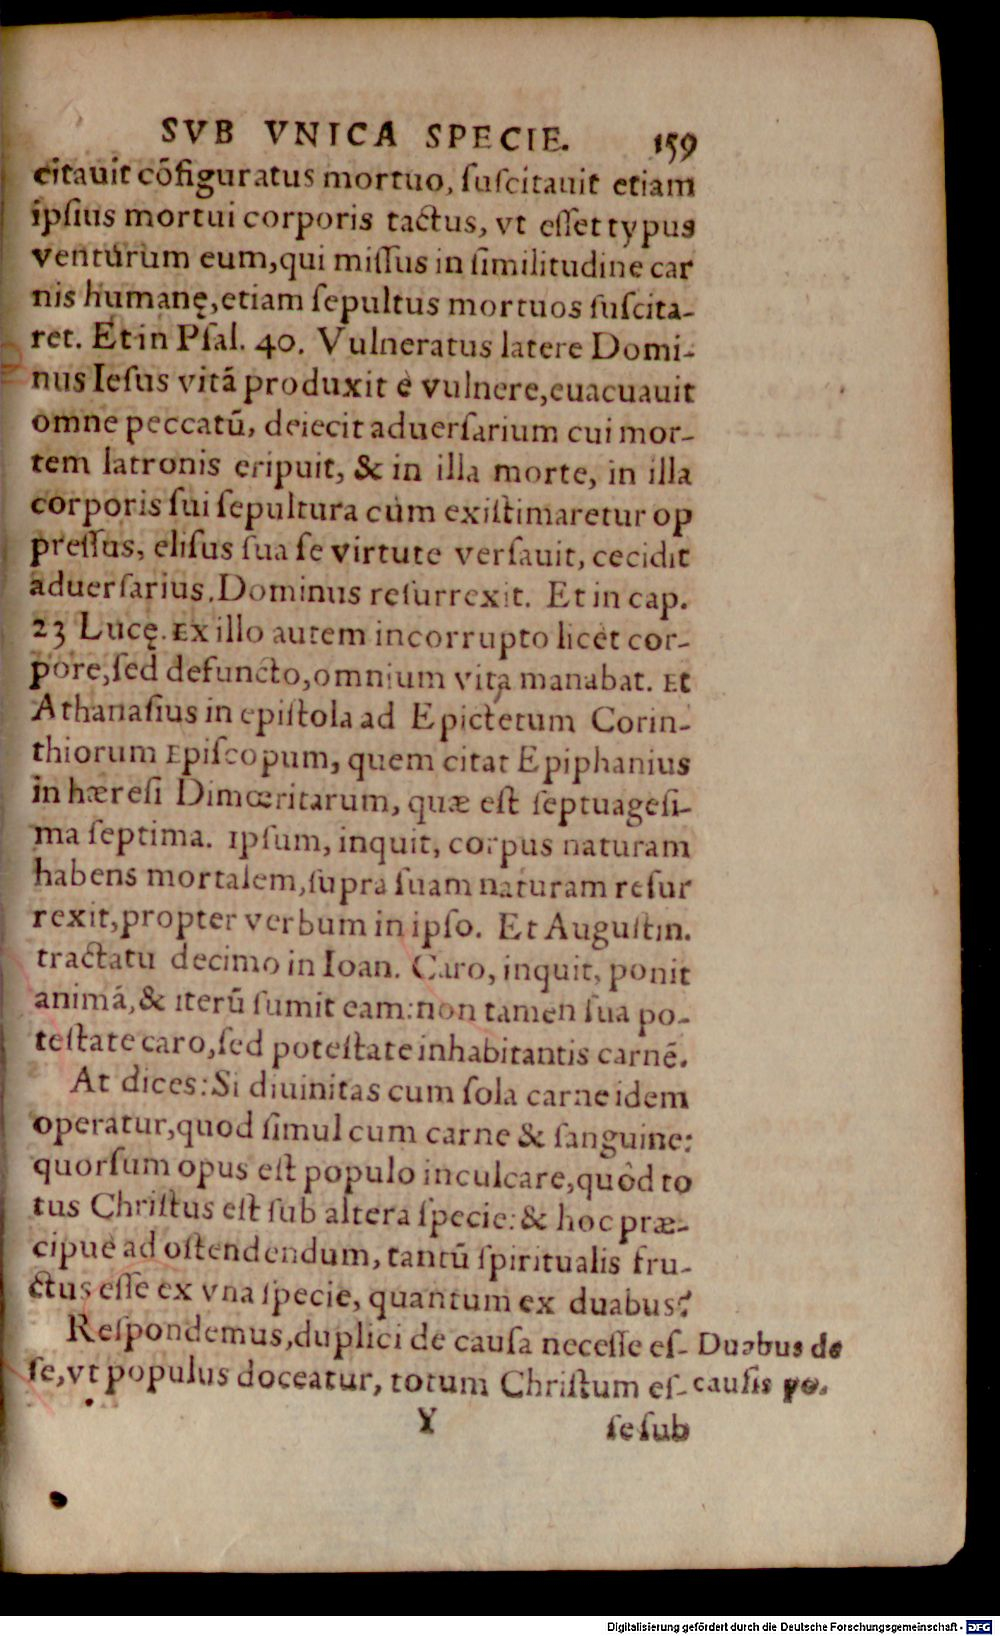 SVB VNICA SPECIE. 159
citauit cõfiguratus mortuo, ſuſcitauit etiam
ipſius mortui corporis tactus, vt eſſet typus
venturum eum,qui miſſus in ſimilitudine car
nis humanę,etiam ſepultus mortuos ſuſcita-
ret. Et in Pſal. 40. Vulneratus latere Domi-
nus Ieſus vitã produxit è vulnere,euacuauit
omne peccatũ, deiecit aduerſarium cui mor-
tem latronis eripuit, & in illa morte, in illa
corporis ſui ſepultura cùm exiſtimaretur op
preſſus, eliſus ſua ſe virtute verſauit, cecidit
aduerſarius. Dominus reſurrexit. Et in cap.
23 Lucę. Ex illo autem incorrupto licèt cor-
pore,ſed defuncto,omnium vita manabat. Et
Athanaſius in epiſtola ad Epictetum Corin-
thiorum Epiſcopum, quem citat Epiphanius
in hæreſi Dimœritarum, quæ eſt ſeptuageſi-
ma ſeptima. Ipſum, inquit, corpus naturam
habens mortalem,ſupra ſuam naturam reſur
rexit,propter verbum in ipſo. Et Auguſtin.
tractatu decimo in Ioan. Caro, inquit, ponit
animã,& iterũ ſumit eam:non tamen ſua po-
teſtate caro,ſed poteſtate inhabitantis carnẽ.
At dices:Si diuinitas cum ſola carne idem
operatur,quod ſimul cum carne & ſanguine:
quorſum opus eſt populo inculcare,quòd to
tus Chriſtus eſt ſub altera ſpecie: & hoc præ-
cipuè ad oſtendendum, tantũ ſpiritualis fru-
ctus eſſe ex vna ſpecie, quantum ex duabus?
Reſpondemus,duplici de cauſa neceſſe eſ-
ſe,vt populus doceatur, totum Chriſtum eſ-
Duabus de
cauſis po.
Y ſe ſub
Digitalisierung gefördert durch die Deutsche Forschungsgemeinschaft - DFG